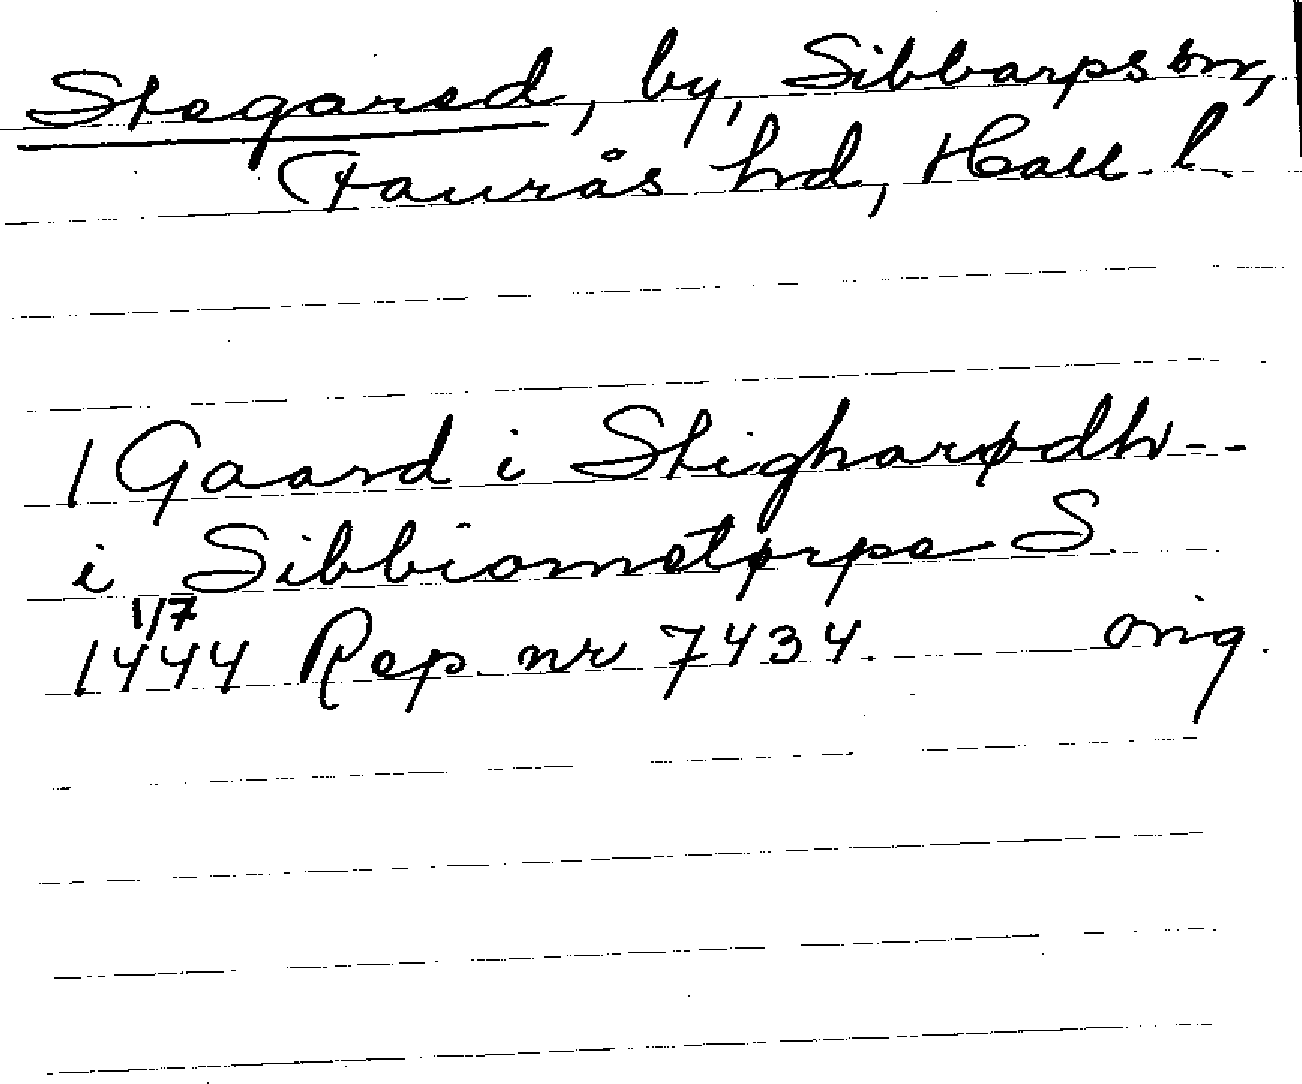 Stegared, by, Sibbarps sn,
Faurås hd, Hall. l.
1 Gaard i Stigharødh --
i Sibbiornstørpe S.
1/7
1444 Rep. nr 7434. orig.